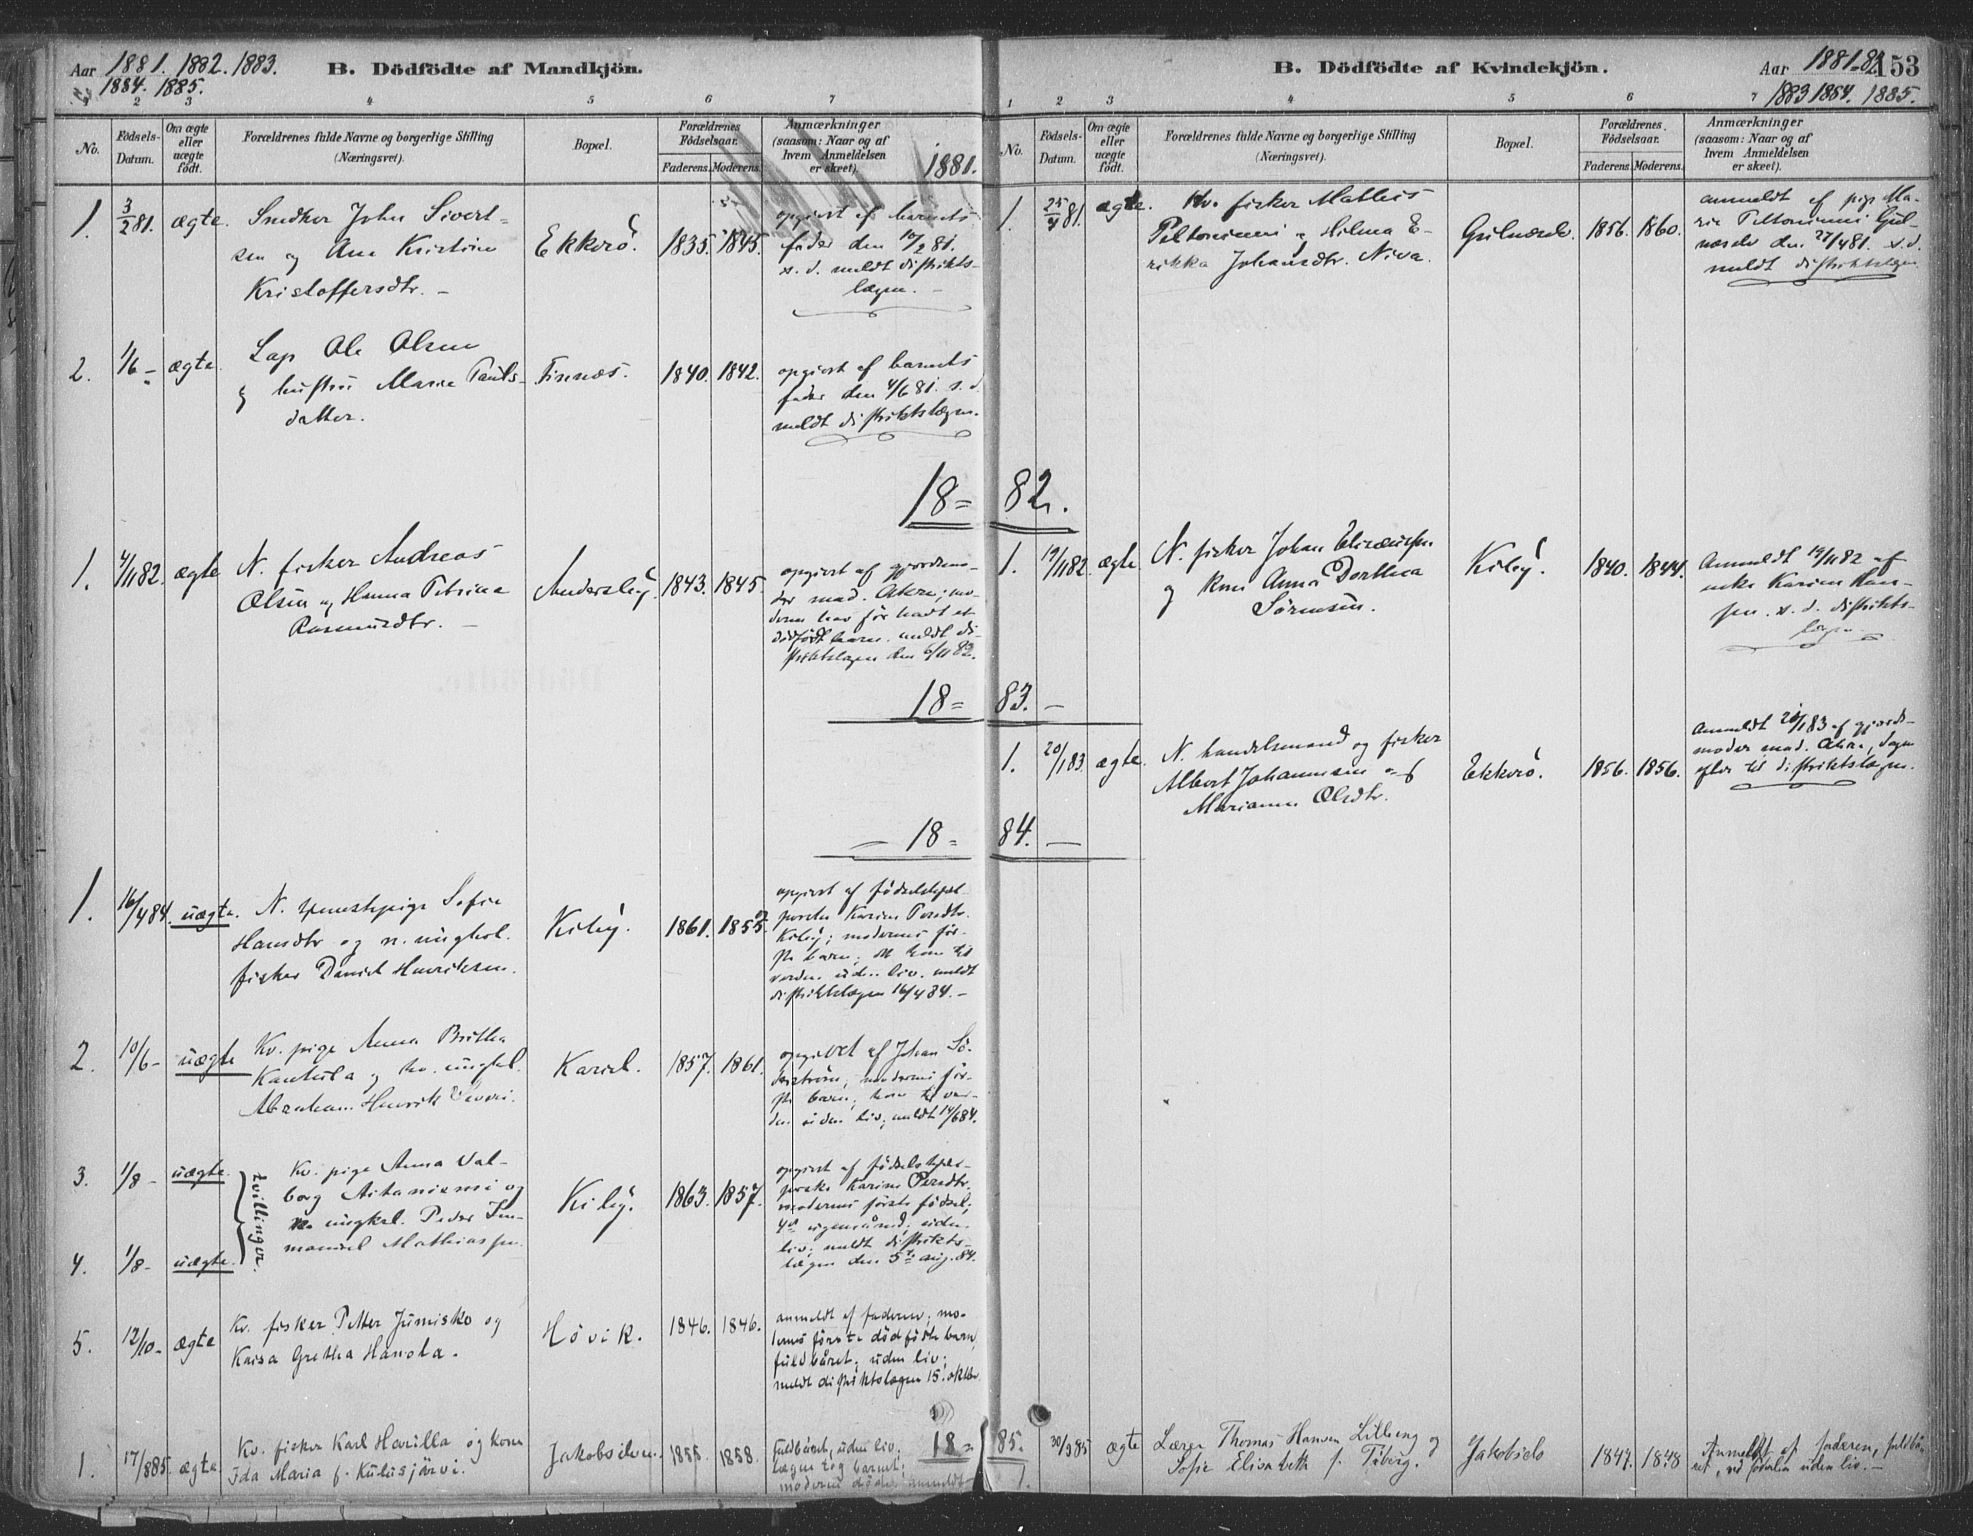 Aar 1881. 1882. 1883.
1884. 1885.
B. Dödfödte af Mandkjön.
1 2 3 4 5 6 7
No.
Födsels-
Datum.
Om ægte
eller
uægte
födt.
Forældrenes fulde Navne og borgerlige Stilling
(Næringsvei).
Bopæl.
Forældrenes
Födselsaar.
Faderens. Moderens.
Anmærkninger
(saasom: Naar og af
hvem Anmeldelsen
er skeet).
1881.
1. 3/2 81. ægte.
Snedker John Sivert-
sen og Ane Kristine
Kristoffersdtr. -
Ekkerö. 1835. 1845.
opgivet af barnets
fader den 10/2 81.
s. d. meldt distrikts-
lægen. -
2. 1/6 - ægte.
Lap Ole Olsen
og hustru Marie Pauls-
datter.
Finnæs. 1840. 1842.
opgivet af barnets
fader den 4/6 81. s. d.
meldt distriktslægen.
18 = 82.
1. 4/11 82. ægte
N. fisker Andreas
Olsen og Hanna Petrine
Rasmusdtr. -
Andersby. 1843. 1845.
opgivet af gjordemo-
der mad. Akre; mo-
deren har før havt et
dødfødt barn. meldt di-
striktslægen den 6/11 82.
18 = 83. -
- 18 = 84. -
1. 16/4 84. uægte.
N. tjenestepige Sofie
Hansdtr og n. ungkal.
fisker Daniel Henriksen.
Kiby. 1861. 1855.
opgivet af fødselshjæl-
persken Karine Persdtr.
Kiby; moderens før-
ste barn; det kom til
verden uden liv. meldt
distriktslægen 16/4 84. -
2. 10/6 - uægte
Kv. pige Anna Britha
Kantola og kv. ungkl.
Abraham Henrik
Kariel. 1857. 1861.
opgivet af Johan Sö-
derström; moderens før-
ste barn; kom til ver-
den uden liv; meldt 14/6 84.
3. 1/8 - uægte.
4. 1/8 - uægte.
tvillinger.
Kv. pige Anna Val-
borg Aitaniemi og
n. ungkal. Peder Im-
manuel Mathiassen.
Kiby. 1863. 1857.
opgivet af fødselshjæl-
perske Karine Persdtr.
moderens første fødsel;
uden
liv; meldt distrikts-
lægen den 5te aug. 84.
5. 12/10 - ægte
Kv. fisker Petter Jumisko og
Kaisa Gretha Hanola.
Hövik. 1846. 1846.
anmeldt af faderen; mo-
derens første dödfödte barn,
fuldbåret; uden liv;
meldt distriktslægen 15. oktbr.
18 = 85.
1. 17/8 85. ægte
Kv. fisker Karl Harilla og kone
Ida Maria f. Kulusjärvi.
Jakobselven. 1855. 1858.
fuldbåret, uden liv;
lægen tog barnet;
moderen døde; anmeldt
B. Dödfödte af Kvindekjön.
Aar 1881-82 153
1883 1884. 1885.
1 2 3 4 5 6 7
No.
Födsels-
Datum.
Om ægte
eller
uægte
födt.
Forældrenes fulde Navne og borgerlige Stilling
(Næringsvei).
Bopæl.
Forældrenes
Födselsaar.
Faderens. Moderens.
Anmærkninger
(saasom: Naar og af
hvem Anmeldelsen
er skeet).
1. 25/4 81. ægte.
Kv. fisker Mathis
Peltoniemi og Hilma E-
rikka Johansdtr. Niva.
Gulnæselv. 1856. 1860.
anmeldt af pige Ma-
rie Peltoniemi Gul-
næselv den 27/4 81. s. d.
meldt distriktslægen.
1. 19/11 82. ægte
N. fisker Johan Eliseussen
og kone Anna Dorthea
Sörensen.
Kiby. 1840. 1844.
Anmeldt 19/11 82 af
enke Karen Han-
sen. s. d. distrikts-
lægen -
1. 20/1 83 ægte.
N. handelsmand og fisker
Albert Johannesen og
Marianne Olsdtr.
Ekkerö. 1856. 1856.
anmeldt 20/1 83 af gjorde-
moder mad. Akre, dagen
efter til distriktslægen.
1. 30/9 85 ægte
Lærer Thomas Hansen Lilleeng og
Sofie Elisabeth f. Fiberg.
Jakobselv 1847. 1848
Anmeldt af faderen, fuldbå-
ret, ved fødselen uden liv. -